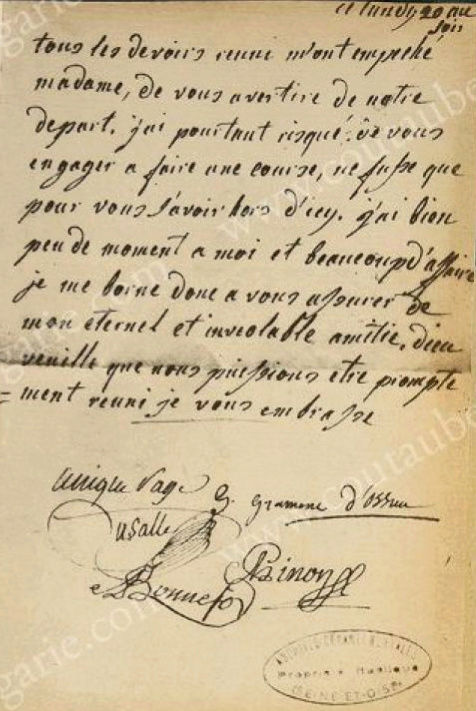 ce lundy 20 au
soir
tous les devoirs reuni m'ont empeché
madame, de vous avertire de notre
depart. j'ai pourtant risqué de vous
engager a faire une course, ne fusse que
pour vous savoir hors d'icy. j'ai bien
peu de moment a moi et beaucoup d'affaire
je me borne donc a vous assurer de
mon eternel et inveolable amitie. dieu
veuille que nous puissions etre prompte
=ment reuni je vous embrasse
unique page G. Gramont d'Ossun
Dusalle
Bonnet ABinoy
ARCHIVES DEPARTEMENTALES
Propriété Publique
SEINE-ET-OISE